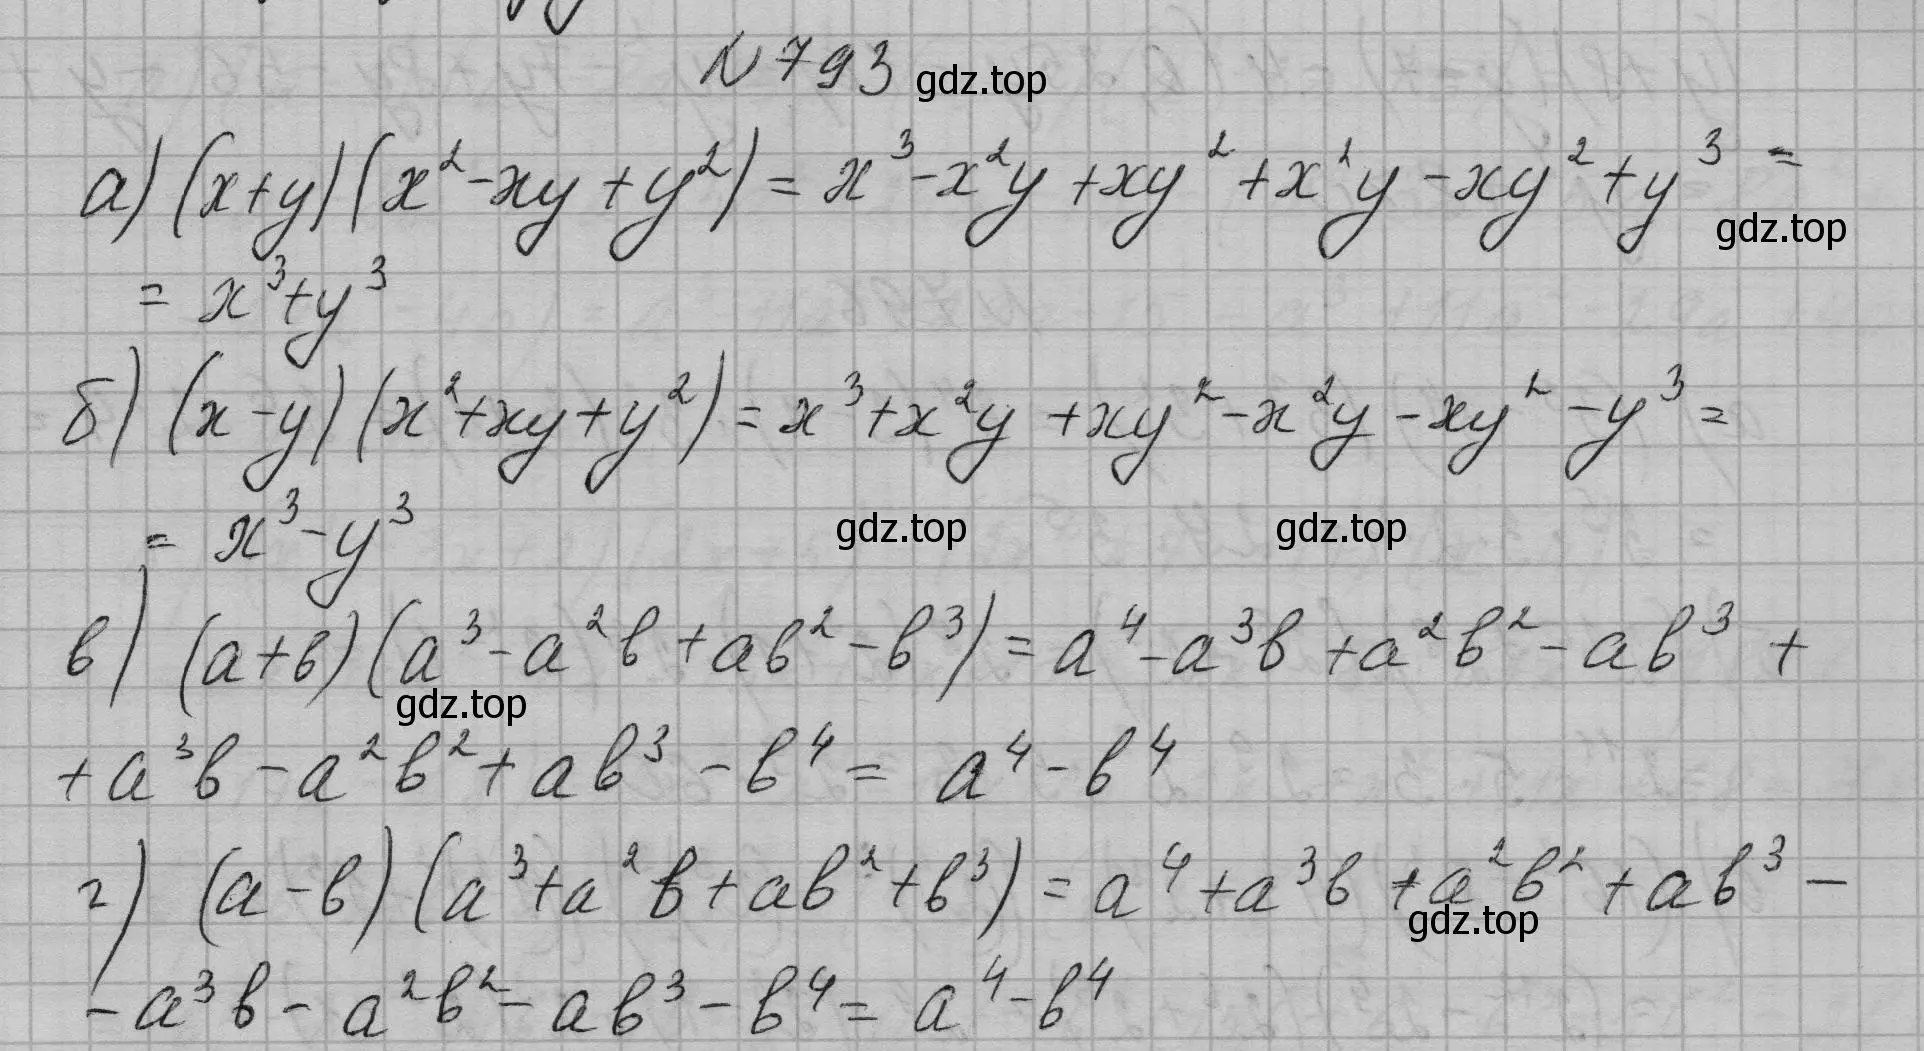 N 793 gdz.top
а) (x+y)(x²-xy+y²)=x³-x²y+xy²+x²y-xy²+y³=
gdz.top
= x³+y³
б) (x-y)(x²+xy+y²)=x³+x²y+xy²-x²y-xy²-y³=
= x³-y³ gdz.top gdz.top
в) (a+b)(a³-a²b+ab²-b³)=a⁴-a³b+a²b²-ab³+
gdz.top
+a³b-a²b²+ab³-b⁴= a⁴-b⁴
г) (a-b)(a³+a²b+ab²+b³)=a⁴+a³b+a²b²+ab³-
gdz.top
-a³b-a²b²-ab³-b⁴=a⁴-b⁴